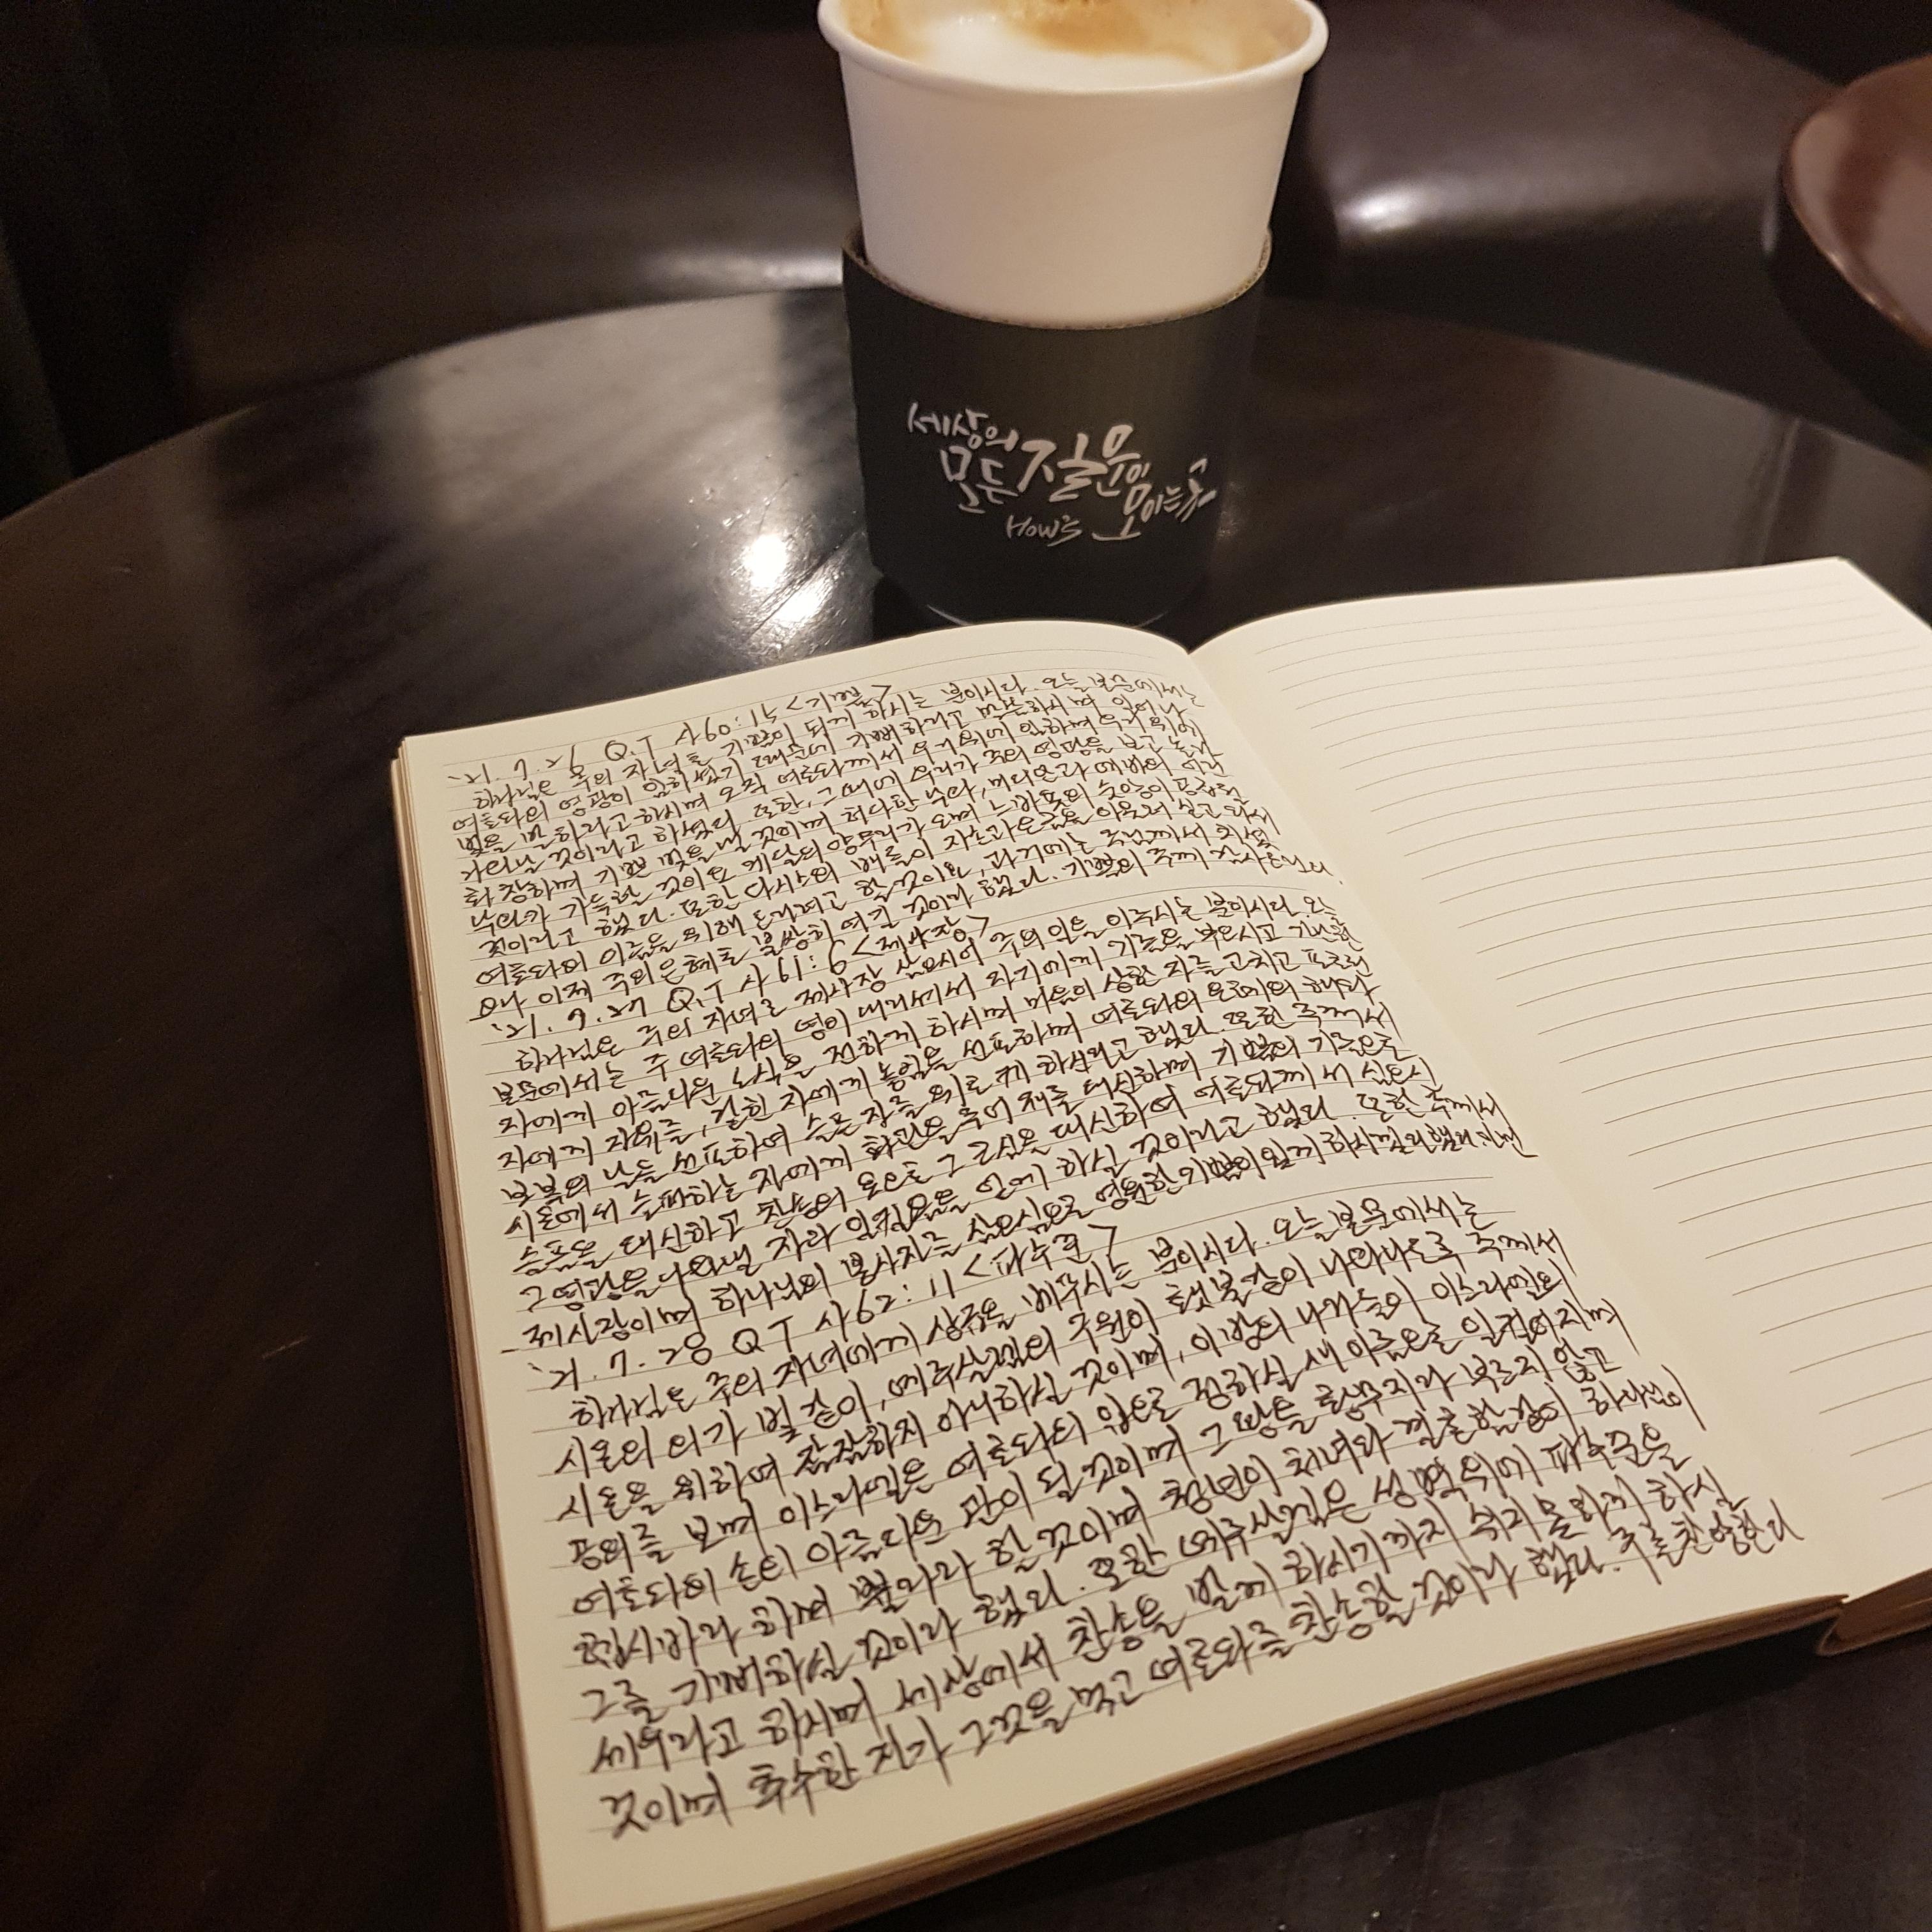 세상의
모든 질문이
모이는 곳
HOW'S
'21. 7. 26 Q.T 사60:15 <기쁨>
하나님은 주의 자녀를 기쁨이 되게 하시는 분이시다. 오늘 본문에서는
여호와의 영광이 임하였기 때문에 기뻐하라고 말씀하시며 일어나
빛을 발하라고 하시며 오직 여호와께서 우리 위에 임하며 우리 위에
나타날 것이라고 하셨다. 또한, 그 때에 우리가 주의 영광을 보고 놀라
화창하며 기쁜 빛을 낼 것이며 허다한 낙타, 미디안과 에바의 어린
낙타가 가득할 것이요 게달의 양무리가 오며 느바욧의 숫양이 공장될
것이라고 했다. 또한 다시스의 배들이 자손과 은금을 아울러 싣고 와서
여호와의 이름을 위해 드리려고 할 것이요, 과거에는 주님께서 치셨
으나 이제 주의 은혜로 불쌍히 여길 것이라 했다. 기쁨의 주께 감사합니다.
'21. 7. 27 Q.T 사 61:6 <제사장>
하나님은 주의 자녀로 제사장 삼으시어 주의 일을 이루시는 분이시다. 오늘
본문에서는 주 여호와의 영이 내리셔서 자기에게 기름을 부으시고 가난한
자에게 아름다운 소식을 전하게 하시며 마음이 상한 자를 고치고 포로된
자에게 자유를, 갇힌 자에게 놓임을 선포하며 여호와의 은혜의 해와
보복의 날을 선포하여 슬픈 자를 위로케 하신다고 했다. 또한 주께서
시온에서 슬퍼하는 자에게 화관을 주어 재를 대신하며 기쁨의 기름으로
슬픔을 대신하고 찬송의 옷으로 그 근심을 대신하여 여호와께서 심으신
그 영광을 나타낼 자라 일컬음을 얻게 하실 것이라고 했다. 또한 주께서
제사장이며 하나님의 봉사자를 삼으심으로 영원한 기쁨이 있게 하시겠다 했다.
'21. 7. 28 QT 사62:11 <파수꾼>
하나님은 주의 자녀에게 상급을 베푸시는 분이시다. 오늘 본문에서는
시온의 의가 빛 같이, 예루살렘의 구원이 횃불 같이 나타나도록 주께서
시온을 위하여 잠잠하지 아니하실 것이며, 이방의 나라들이 이스라엘의
공의를 보며 이스라엘은 여호와의 입으로 정하실 새 이름으로 일컬어지며
여호와의 손의 아름다운 관이 될 것이며 그 땅은 황무지라 부르지 않고
헵시바라 하며 쁄라라 할 것이며 청년이 처녀와 결혼함 같이 하나님이
그를 기뻐하실 것이라 했다. 또한 예루살렘은 성벽 위에 파수꾼을
세우라고 하시며 세상에서 찬송을 받게 하시기까지 쉬지 못하게 하실
것이며 추수한 자가 그것을 먹고 여호와를 찬송할 것이라 했다. 주를 찬양한다